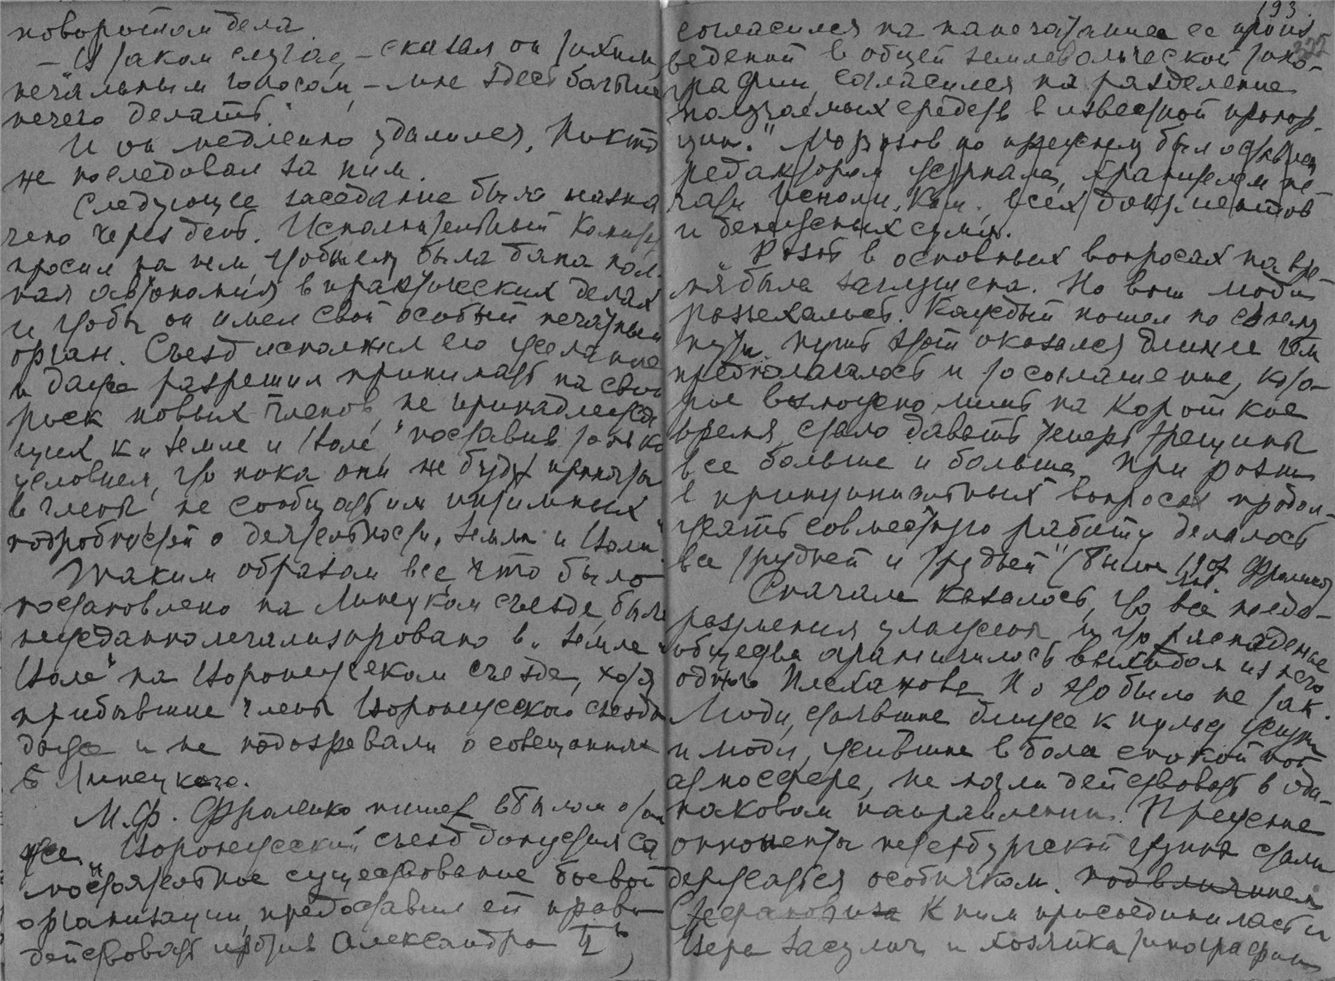 поворотом дела.
– В таком случае, – сказал он тихим
печальным голосом, – мне здесь больше
нечего делать.
И он медленно удалился. Никто
не последовал за ним.
Следующее заседание было назна
чено через день. Исполнительный Комитет
просил на нем, чтобы ему была дана пол-
ная автономия в практических делах
и чтобы он имел свой особый печатный
орган. Съезд исполнил его желание
и даже разрешил принимать на свой
риск новых членов, не принадлежа
щих к „Земле и Воле", поставив только
условием, что пока они не будут приняты
в члены не сообщать им интимных
подробностей о деятельности „Земли и Воли"
Таким образом все что было
постановлено на Липецком съезде, было
неожиданно легализировано в „Земле и
Воле" на Воронежском съезде, хотя
прибывшие члены Воронежского съезда
даже и не подозревали о совещаниях
Липецкого.
М.Ф. Фроленко пишет в былом о том
же „Воронежский съезд допустил са
мостоятельное существование боевой
организации, предоставил ей право
действовать против Александра II,
193.
согласился на напечатание ее произ
ведений в общей землевольческой типо-
графии, согласился на разделение
получаемых средств в известной пропор-
ции." Морозов по прежнему был оставлен
редактором журнала, хранителем пе-
чати Исполн. Ком., всех документов
и денежных сумм.
„Рознь в основных вопросах на вре-
мя была заглушена. Но вот люди
разъехались. Каждый пошел по своему
пути. Путь этот оказался длиннее чем
предполагалось и то соглашение, кото-
рое возможно лишь на короткое
время, стало давать теперь трещины
все больше и больше. При розни
в принципиальных вопросах продол-
жать совместную работу делалось
все трудней и трудней" (Былое 1907 Фроленко)
Сначала казалось, что все недо-
разумения улажены, и что распадение
общества ограничилось выходом из него
одного Плеханова. Но это было не так.
Люди, стоявшие ближе к пульсу жизни
и люди, жившие в более спокойной
атмосфере, не могли действовать в оди-
наковом направлении. Прежние
оппоненты петербургской группы стали
держаться особняком. Под влиянием
Стефановича К ним присоединилась и
Вера Засулич и хозяйка типографии